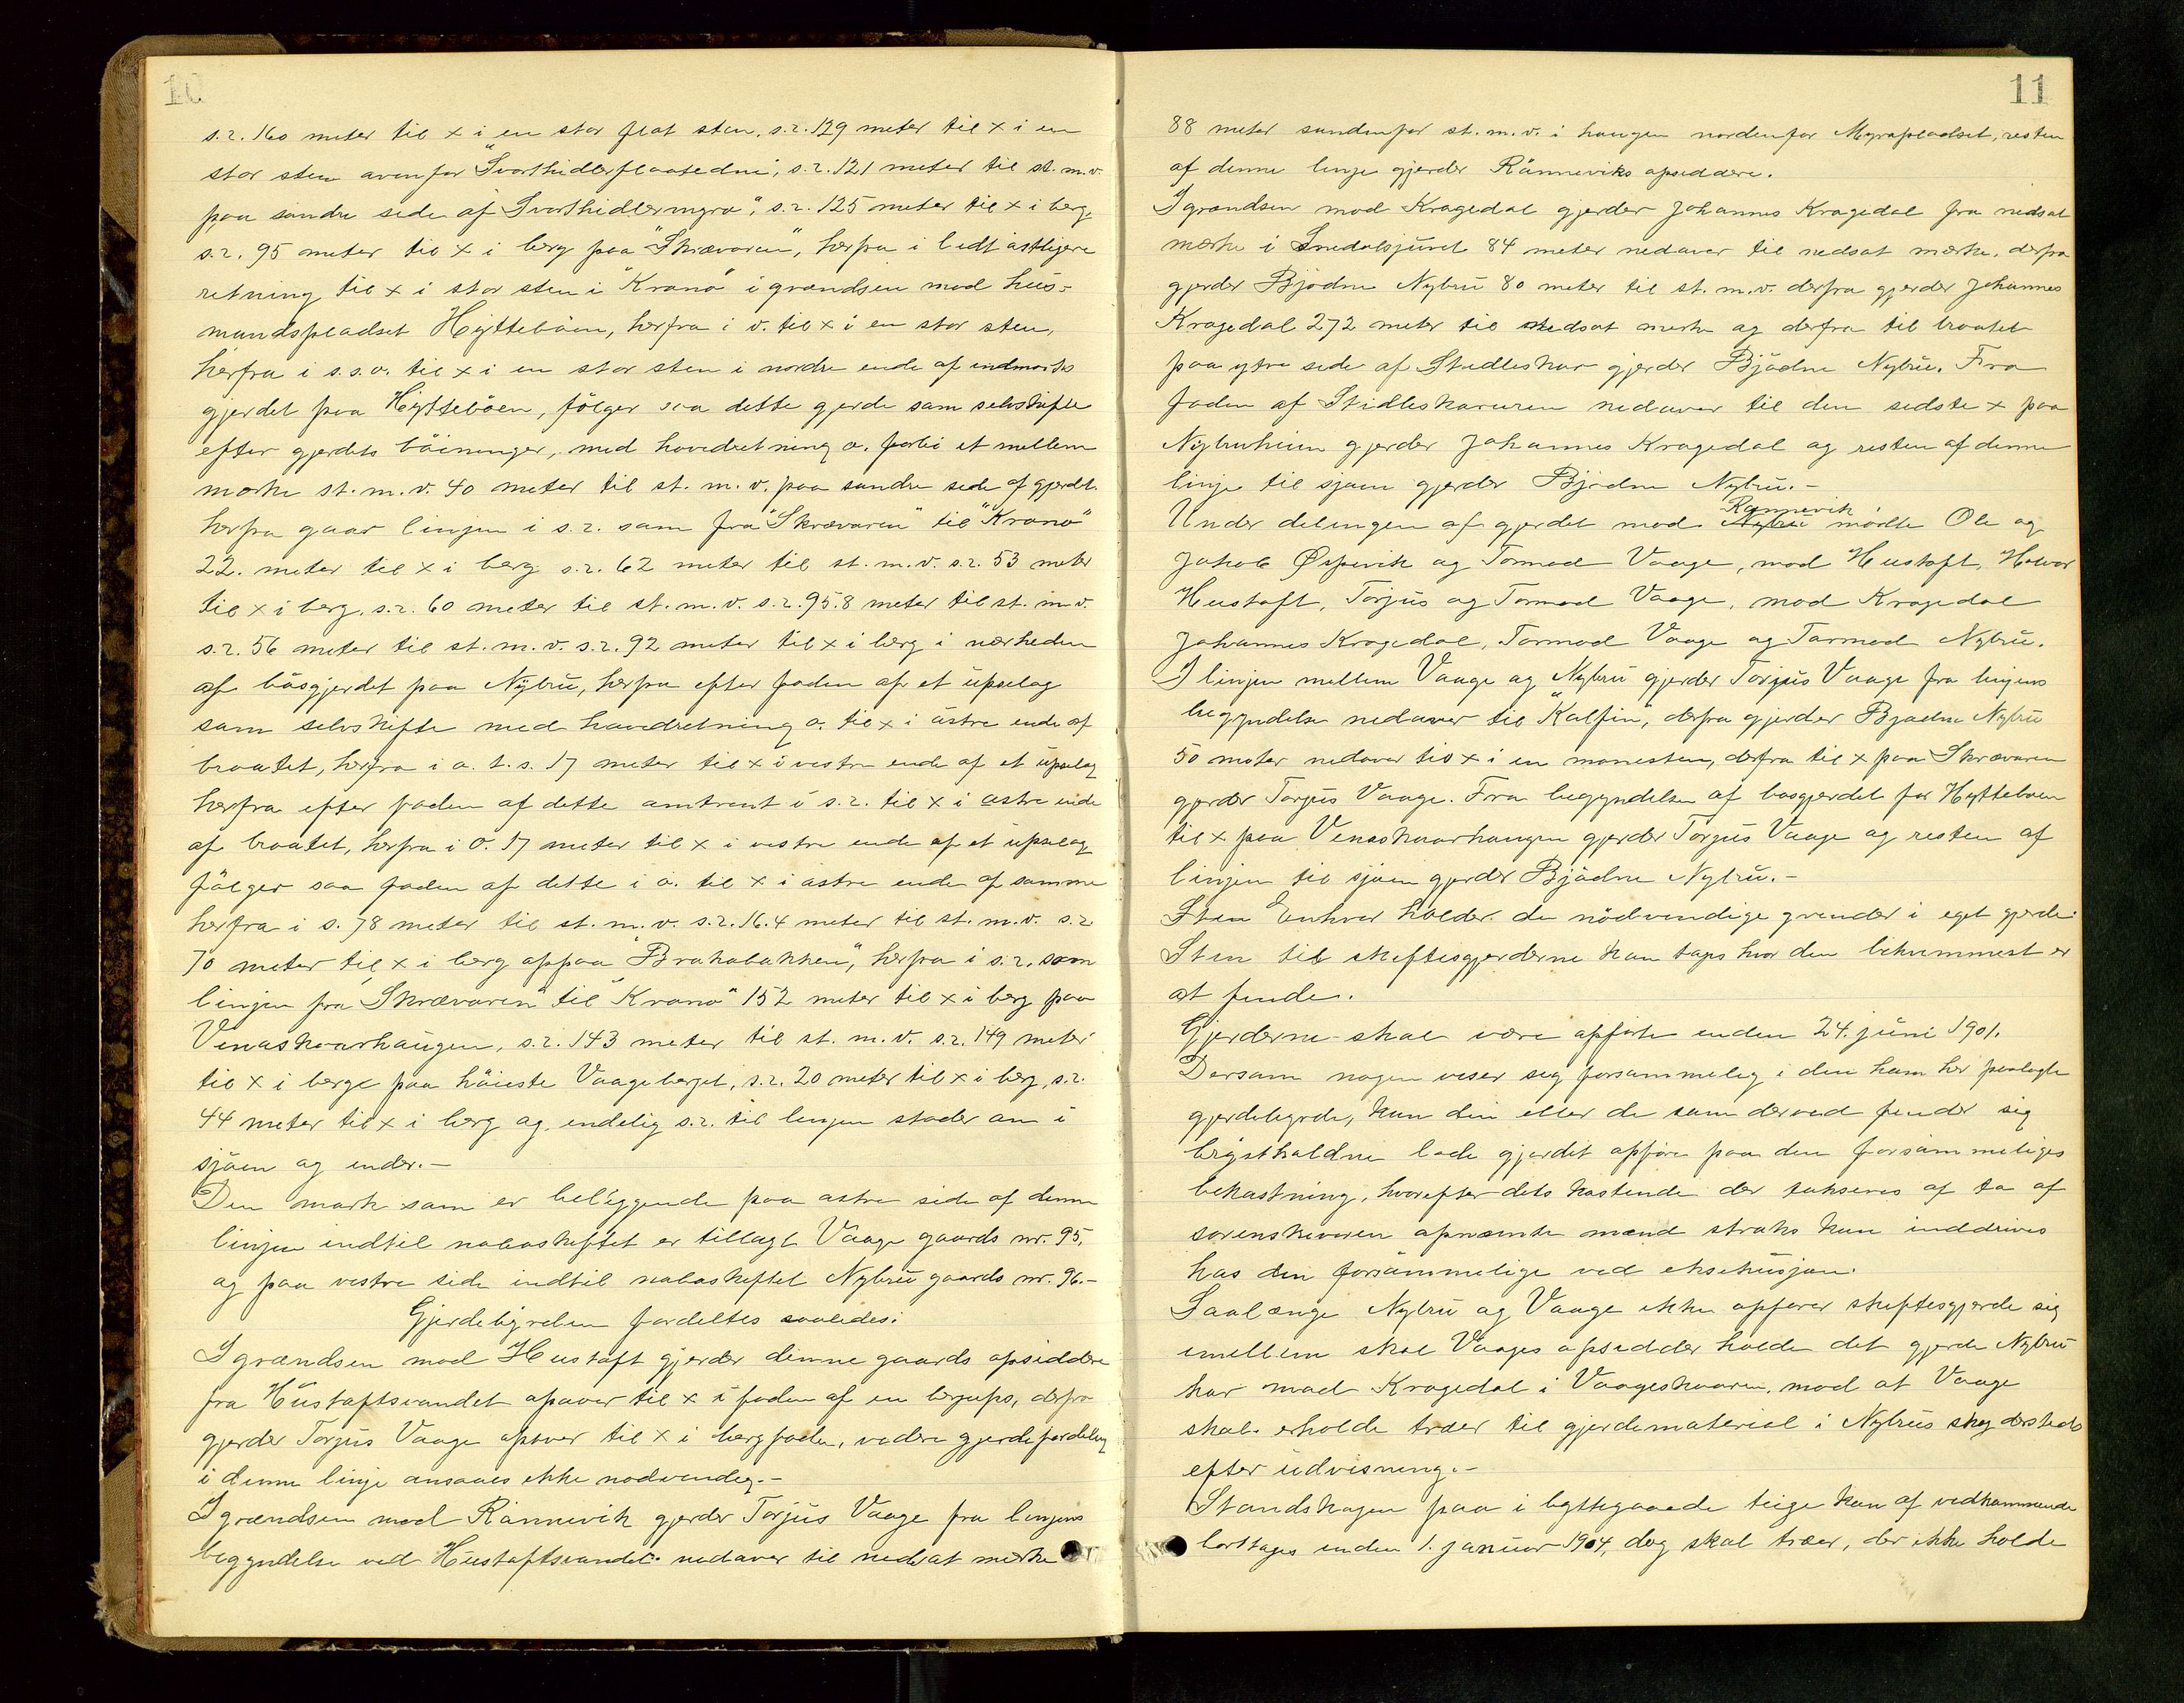 10
s.r. 160 meter til x i en stor flat sten, s.r. 129 meter til x i en
stor sten ovenfor "Svorthidlerflaatedne", s.r. 121 meter til st. m.v.
paa søndre side af "Svorthidlermyra", s.r. 125 meter til x i berg,
s.r. 95 meter til x i berg paa "Skrævaren", herfra i lidt østligere
retning til x i stor sten i "Kranö" i grændsen mod hus-
mandspladset Hytteböen, herfra i v. til x i en stor sten,
herfra i s.s.o. til x i en stor sten i nordre ende af indmarks
gjerdet paa Hyttebøen, fölger saa dette gjerde som selvskifte
efter gjerdets böininger, med hovedretning o. forbi et mellem
merke st. m.v. 40 meter til st. m.v. paa søndre side af gjerdet.
herfra gaar linjen i s.r. som fra "Skrævaren" til "Kranö"
22. meter til x i berg s.r. 62 meter til st. m.v. s.r. 53 meter
til x i berg, s.r. 60 meter til st. m.v. s.r. 95.8 meter til st. m.v.
s.r. 56 meter til st. m.v. s.r. 92 meter til x i berg i nærheden
af bøsgjerdet paa Nybrü, herfra efter foden af et üpslag
som selvskifte med hovedretning o. til x i østre ende af
braatet, herfra i o. t. s. 17 meter til x i vestre ende af et üpslag
herfra efter foden af dette omtrent i s.r. til x i østre ende
af braatet, herfra i o. 17 meter til x i vestre ende af et üpslag
fölger saa foden af dette i o. til x i østre ende af samme
herfra i s. 78 meter til st. m.v. s.r. 16.4 meter til st. m.v. s.r.
70 meter til x i berg oppaa "Brakabakken", herfra i s.r. som
linjen fra "Skrævaren" til "Kranö" 152 meter til x i berg paa
Venaskaarhaugen, s.r. 143 meter til st. m.v. s.r. 149 meter
til x i berge paa höieste Vaageberget, s.r. 20 meter til x i berg, s.r.
44 meter til x i berg og endelig s.r. til linjen støder an i
sjöen og ender.-
Den mark som er beliggende paa østre side af denne
linjen indtil naboskiftet er tillagt Vaage gaards nr. 95,
og paa vestre side indtil naboskiftet Nybrü gaards nr. 96.-
Gjerdebyrden fordeltes saaledes:
I grændsen mod Hustoft gjerder denne gaards opsiddere
fra Hüstoftsvandet opover til x i foden af en bergups, derfra
gjerder Torjus Vaage opover til x i bergfoden, videre gjerdefordeling
i denne linje ansaaes ikke nødvendig.-
I grændsen mod Rönnevik gjerder Torjüs Vaage fra linjens
begyndelse ved Hüstoftsvandet nedover til nedsat merke
11
88 meter søndenfor st. m.v. i haugen nordenfor Myrapladset, resten
af denne linje gjerder Rönneviks opsiddere.
I grændsen mod Kragedal gjerder Johannes Kragedal fra nedsat
merke i Snedalsjuvet 84 meter nedover til nedsat merke, derfra
gjerder Bjödne Nybrü 80 meter til st. m.v. derfra gjerder Johannes
Kragedal 272 meter til nedsat merke og derfra til braatet
paa ytre side af Stidleskar gjerder Bjödne Nybrü. Fra
foden af Stidleskaruren nedover til den sidste x paa
Nybruheien gjerder Johannes Kragedal og resten af denne
linje til sjøen gjerder Bjödne Nybrü.-
Under delingen af gjerdet mod Nybru Rønnevik mødte Ole og
Jakob Øspevik og Tormod Vaage, mod Hustoft, Halvor
Hustoft, Torjüs og Tormod Vaage, mod Kragedal
Johannes Kragedal, Tormod Vaage og Tormod Nybrü.
I linjen mellem Vaage og Nybrü gjerder Torjüs Vaage fra linjens
begyndelse nedover til "Kalfin", derfra gjerder Bjødne Nybrü
50 meter nedover til x i en manesten, derfra til x paa Skrævaren
gjerder Torjüs Vaage. Fra begyndelsen af bøsgjerdet for Hyttebøen
til x paa Venaskaarhaugen gjerder Torjüs Vaage og resten af
linjen til sjøen gjerder Bjödne Nybrü.-
Sten Enhver holder de nödvendige grender i eget gjerde.
Sten til skiftesgjerderne kan tages hvor den bekvemmest er
at finde.
Gjerderne skal være opførte inden 24. jüni 1901.
Dersom nogen viser sig forsømmelig i den ham her paalagte
gjerdebyrde, kan den eller de som derved finder sig
brystholdne lade gjerdet opføre paa den forsømmeliges
bekostning, hvorefter dets kostende der takseres af to af
sorenskriveren opnævnte mænd straks kan inddrives
hos den forsømmelige ved eksekusjon.
Saalænge Nybrü og Vaage ikke opfører skiftesgjerde sig
imellem skal Vaages opsidder holde det gjerde Nybrü
har mod Kragedal i Vaageskaaren, mod at Vaage
skal erholde træer til gjerdematerial i Nybrüs skog dersteds
efter üdvisning.-
Standskogen paa i byttegaaede teige kan af vedkommende
borttages inden 1. januar 1904, dog skal træer, der ikke holde